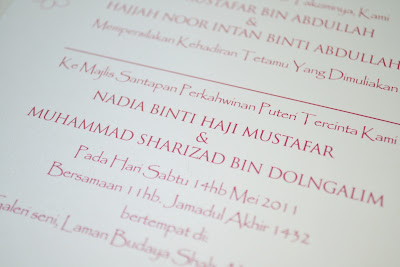 Takzimnya, Kami
MUSTAFAR BIN ABDULLAH
&
HAJJAH NOOR INTAN BINTI ABDULLAH
Mempersilakan Kehadiran Tetamu Yang Dimuliakan
Ke Majlis Santapan Perkahwinan Puteri Tercinta Kami
NADIA BINTI HAJI MUSTAFAR
&
MUHAMMAD SHARIZAD BIN DOLNGALIM
Pada Hari Sabtu 14hb Mei 2011
Bersamaan 11hb. Jamadul Akhir 1432
bertempat di:
Galeri seni, Laman Budaya Shah